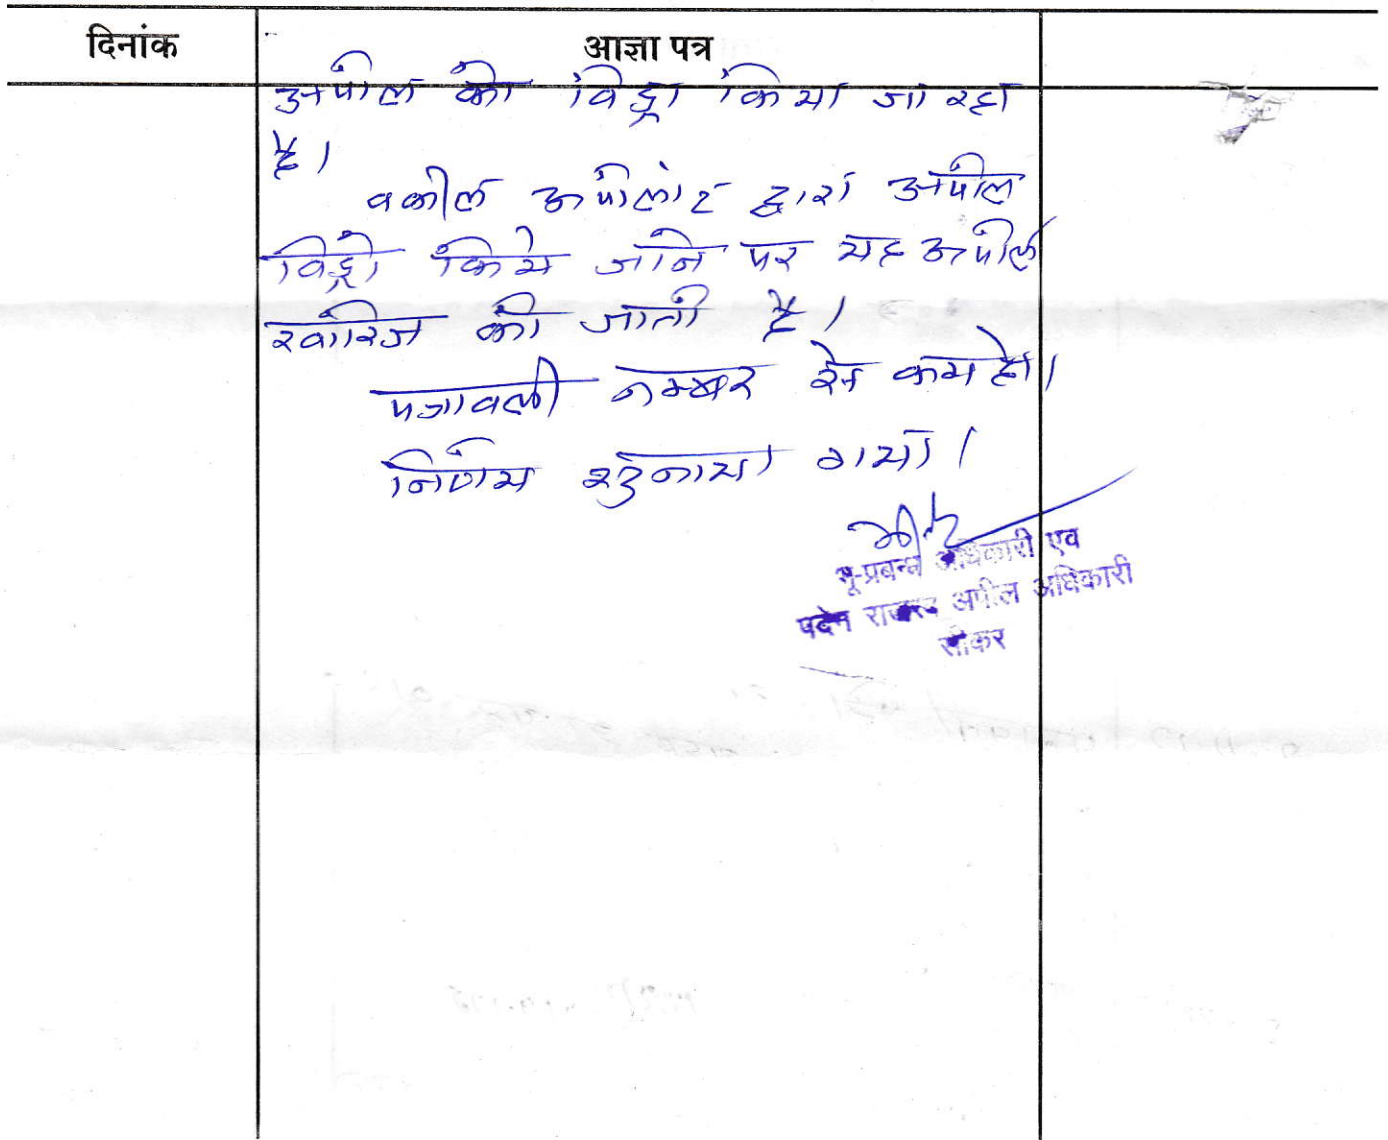 दिनांक आज्ञा पत्र
अपील को विड्रा किया जा रहा
है।
वकील अपीलांट द्वारा अपील
विड्रो किये जाने पर यह अपील
खारिज की जाती है।
पत्रावली नम्बर से कम हो।
निर्णय सुनाया गया।
भू-प्रबन्ध अधिकारी एव
पदेन राजस्व अपील अधिकारी
सीकर